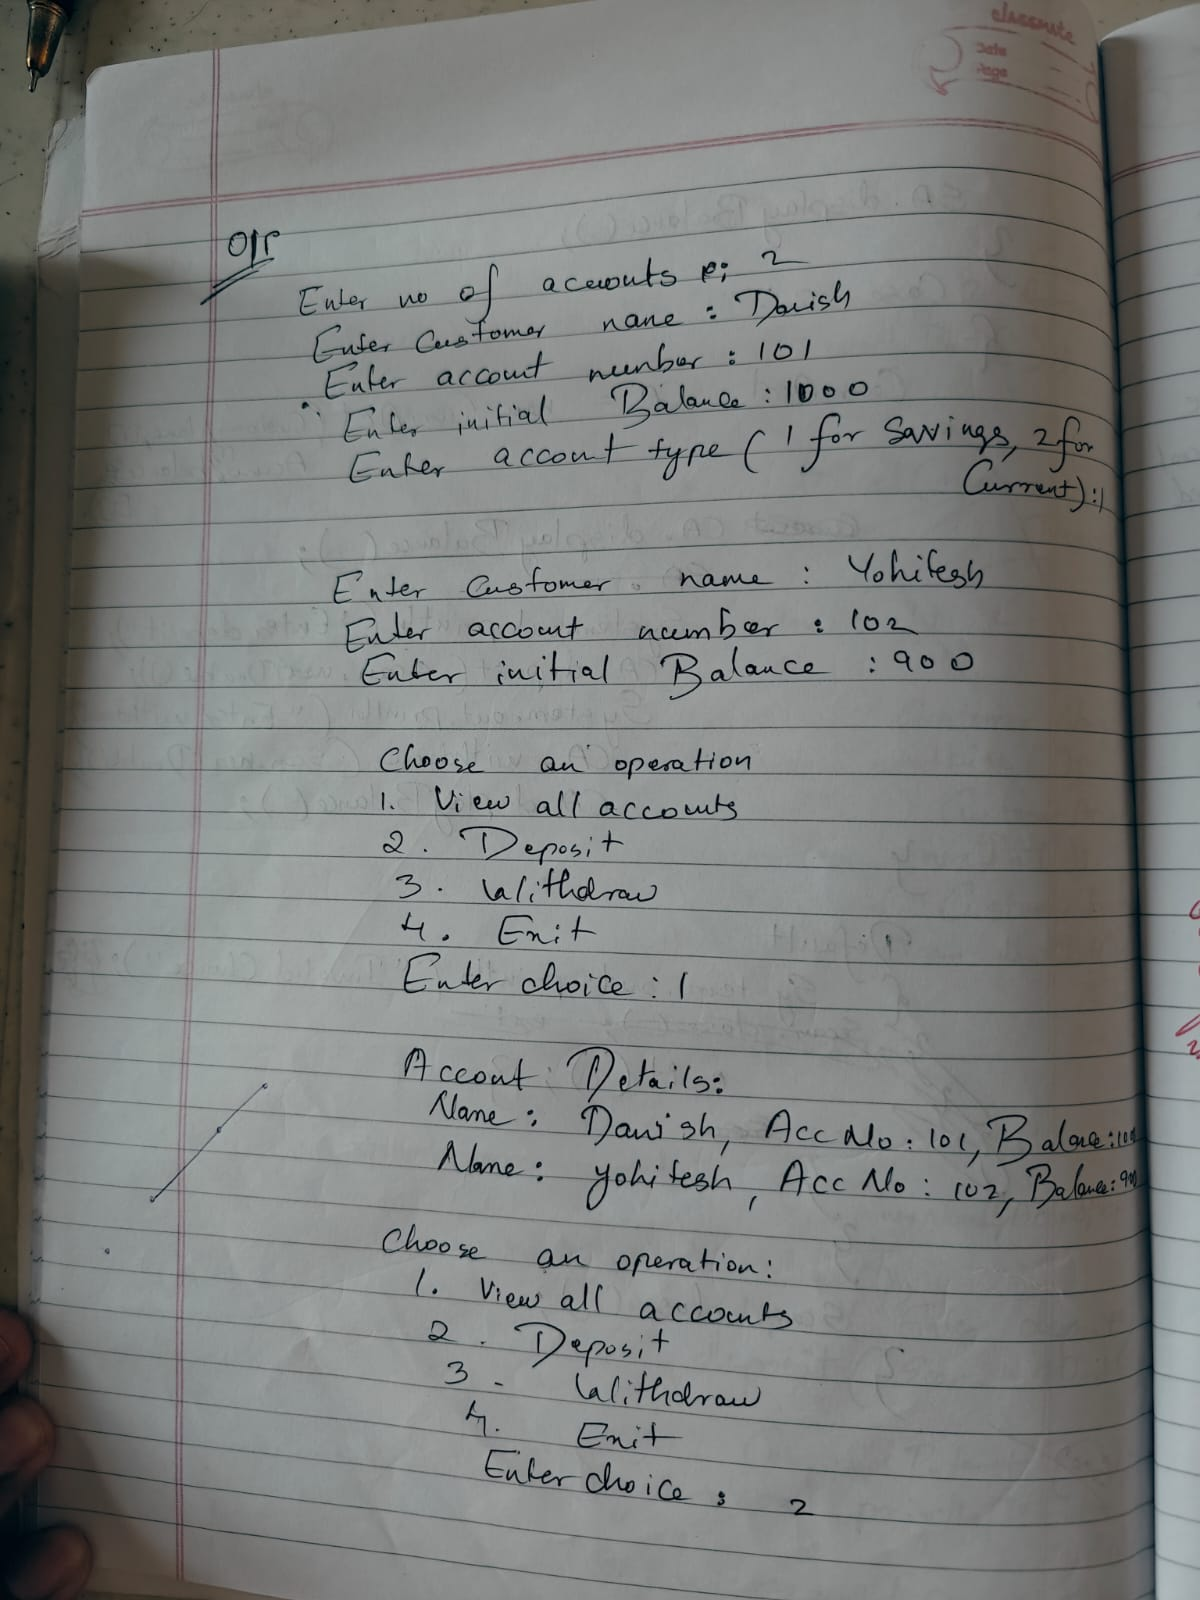 classmate
Date
Page
O/P
Enter no of accounts : 2
Enter Customer name : Danish
Enter account number : 101
Enter initial Balance : 1000
Enter account type ( 1 for Savings, 2 for
Current) : 1
Enter Customer name : Yohitesh
Enter account number : 102
Enter initial Balance : 900
Choose an operation
1. View all accounts
2. Deposit
3. Withdraw
4. Exit
Enter choice : 1
Account Details:
Name : Danish, Acc No : 101, Balance :
Name : Yohitesh, Acc No : 102, Balance : 900
Choose an operation :
1. View all accounts
2. Deposit
3. Withdraw
4. Exit
Enter choice : 2